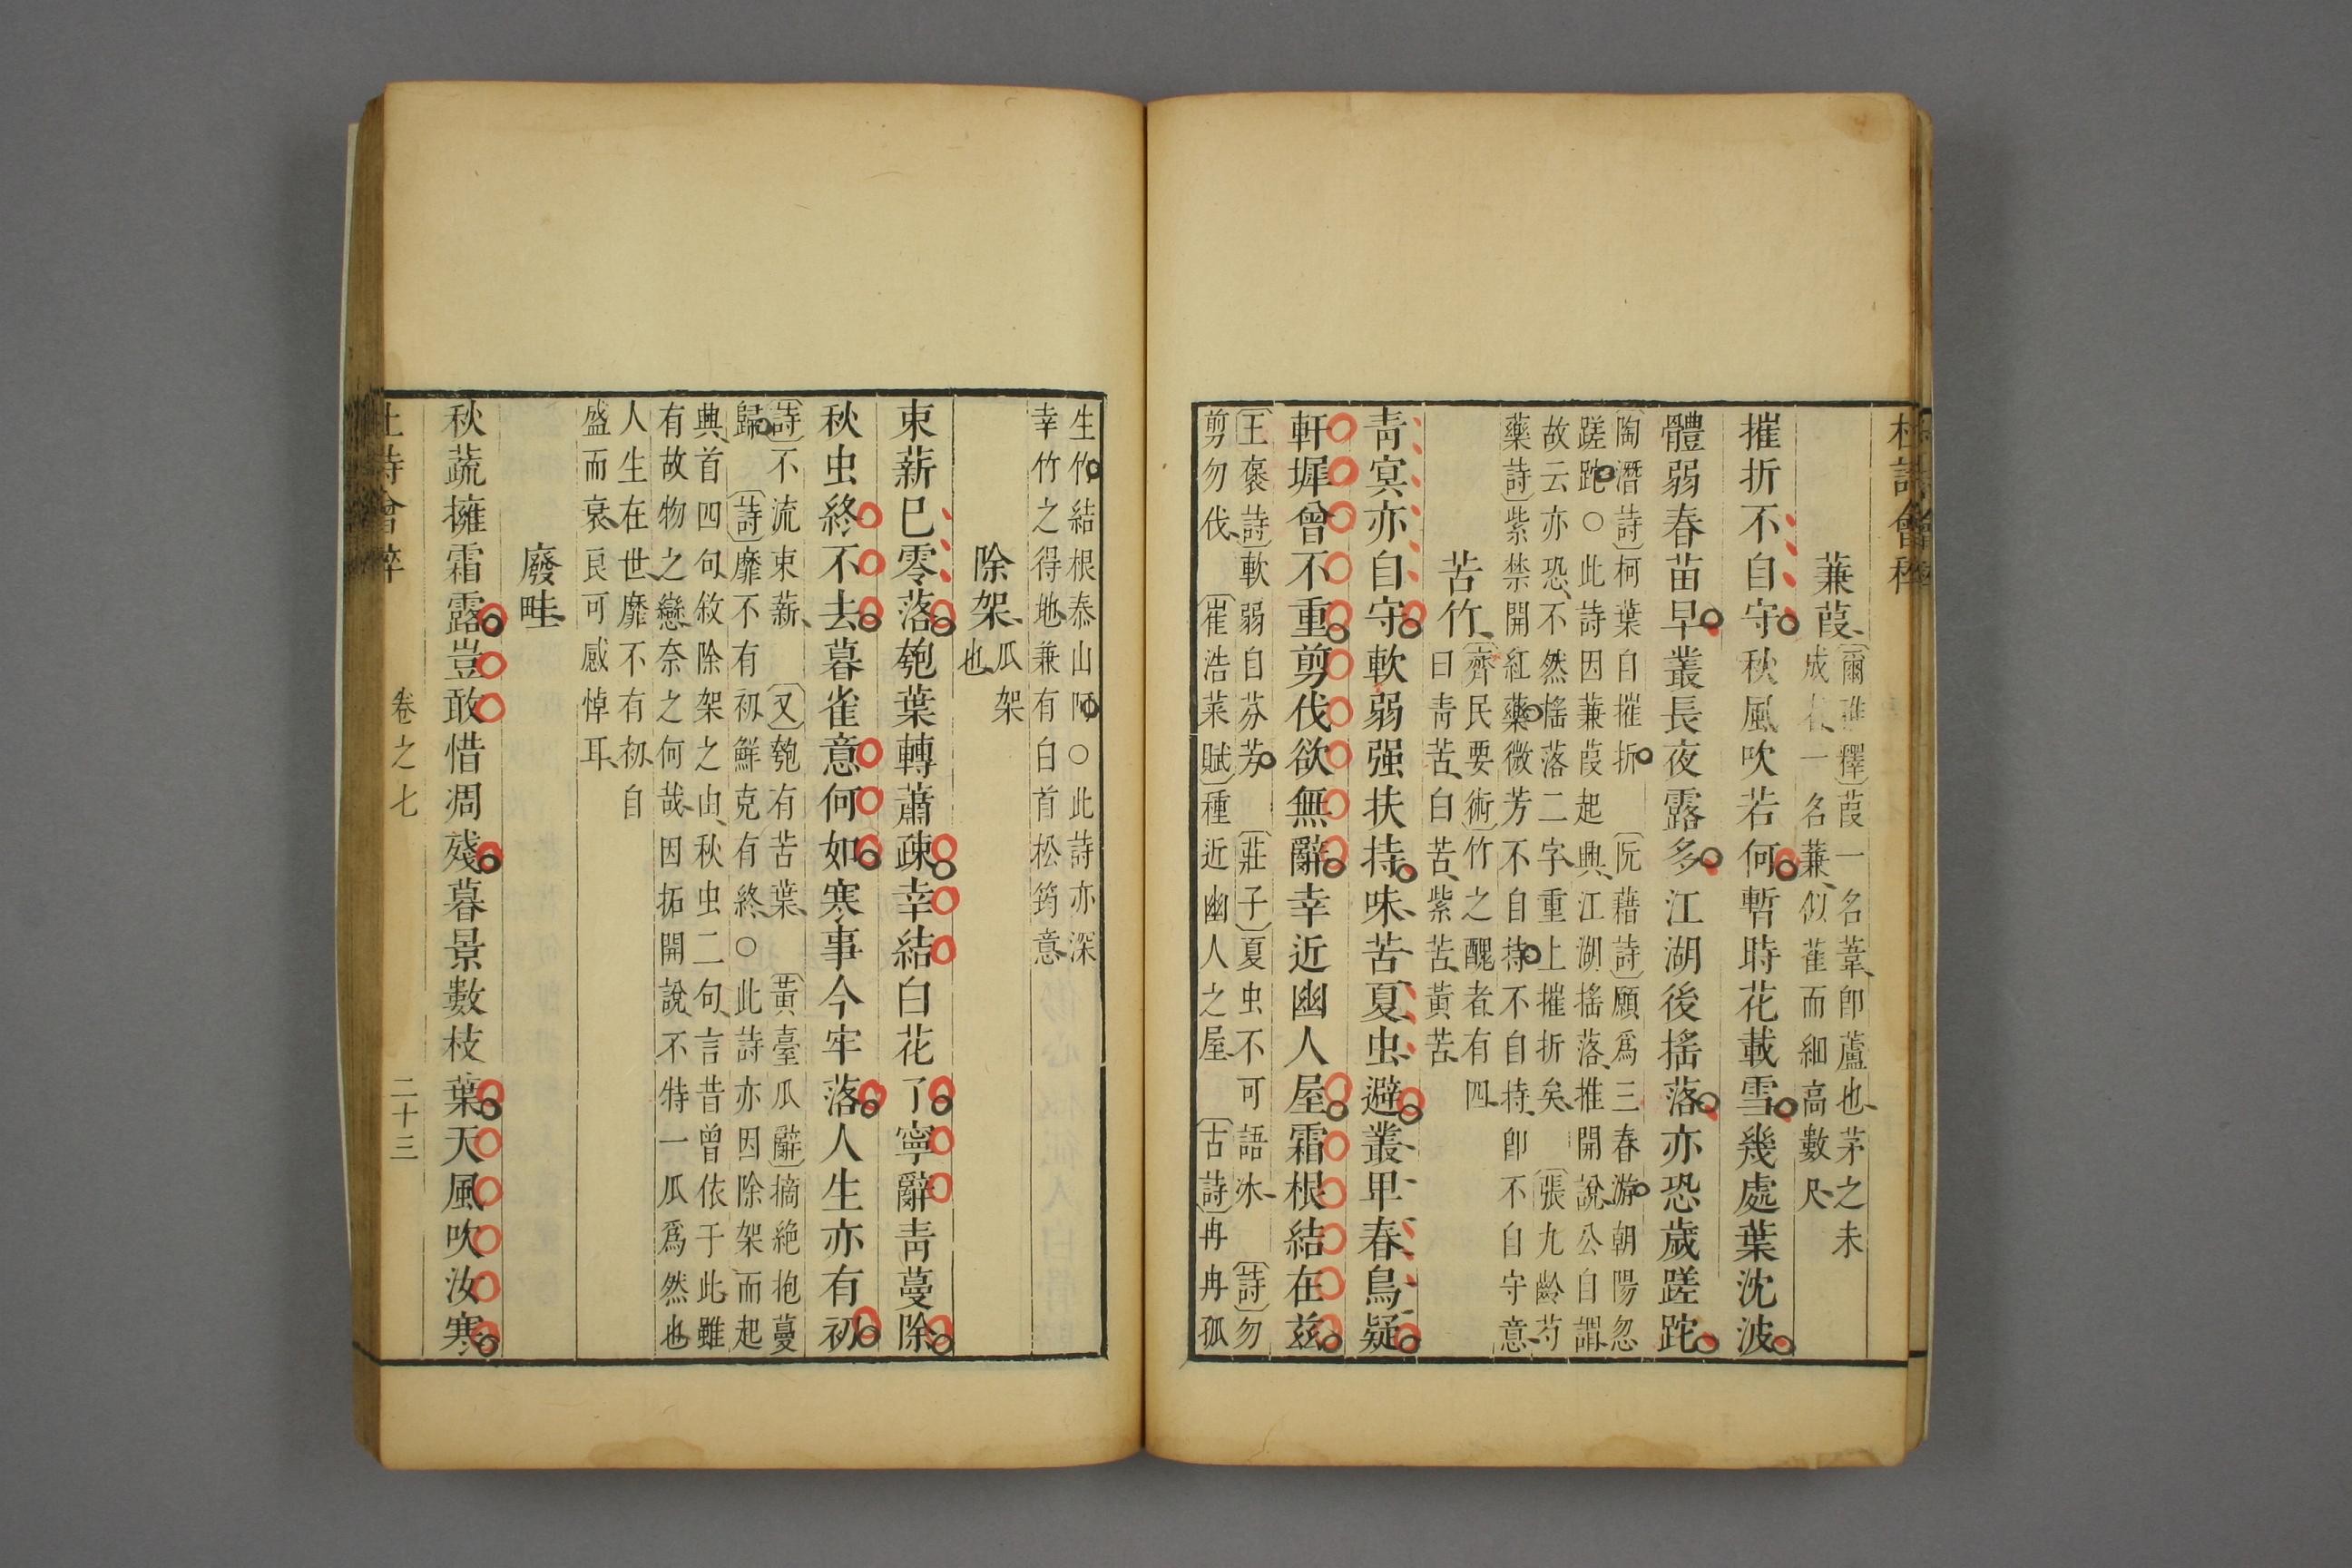 杜詩會稡
蒹葭
爾雅釋葭一名葦即蘆也茅之未
成者一名蒹似萑而細高數尺
摧折不自守秋風吹若何暫時花載雪幾處葉沈波
體弱春苗早叢長夜露多江湖後搖落亦恐歲蹉跎
陶潛詩柯葉自摧折 阮藉詩願爲三春游朝陽忽
蹉跎○此詩因蒹葭起興江湖搖落推開說公自謂
故云亦恐不然搖落二字重上摧折矣 張九齡芍
藥詩紫禁開紅藥微芳不自持不自持即不自守意
苦竹
齊民要術竹之醜者有四
曰青苦白苦紫苦黃苦
青冥亦自守軟弱强扶持味苦夏虫避叢甲春鳥疑
軒墀曾不重剪伐欲無辭幸近幽人屋霜根結在茲
王褒詩軟弱自芬芳 莊子夏虫不可語冰 詩勿
剪勿伐 崔浩菜賦種近幽人之屋 古詩冉冉孤
生竹結根泰山阿○此詩亦深
幸竹之得地兼有白首松筠意
除架
瓜架
也
束薪已零落匏葉轉蕭疎幸結白花了寧辭青蔓除
秋虫終不去暮雀意何如寒事今牢落人生亦有初
詩不流束薪 又匏有苦葉 黃臺瓜辭摘絕抱蔓
歸 詩靡不有初鮮克有終○此詩亦因除架而起
典首四句敘除架之由秋虫二句言昔曾依于此雖
有故物之戀奈之何哉因拓開說不特一瓜爲然也
人生在世靡不有初自
盛而衰良可感悼耳
廢畦
秋蔬擁霜露豈敢惜凋殘暮景數枝葉天風吹汝寒
杜詩會稡 卷之七 二十三